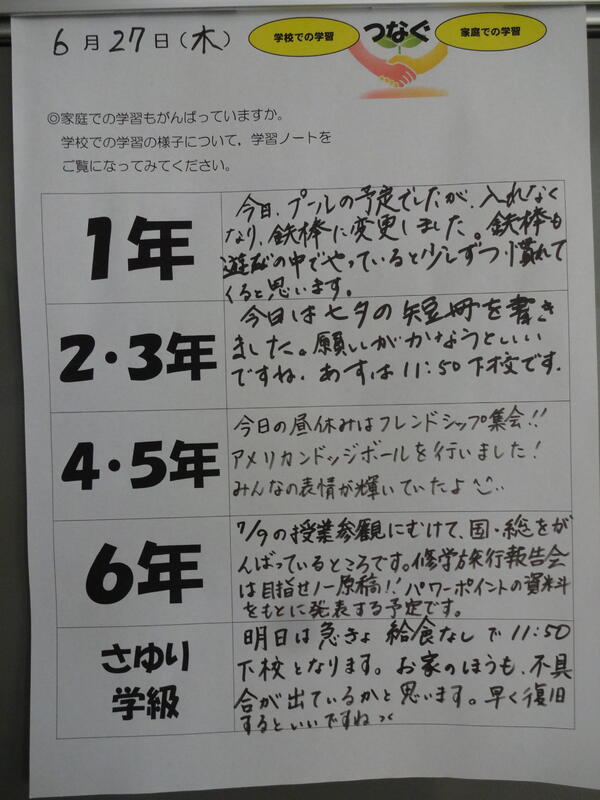 6月27日(木)
学校での学習
つなぐ
家庭での学習
◎家庭での学習もがんばっていますか。
学校での学習の様子について,学習ノートを
ご覧になってみてください。
1年
今日、プールの予定でしたが、入れなく
なり、鉄棒に変更しました。鉄棒も
遊びの中でやっていると少しずつ慣れて
くると思います。
2・3年
今日は七夕の短冊を書き
ました。願いがかなうといい
ですね。あすは11:50下校です.
4・5年
今日の昼休みはフレンドシップ集会!!
アメリカンドッジボールを行いました!
みんなの表情が輝いていたよ
6年
7/9の授業参観にむけて、国・総をが
んばっているところです。修学旅行報告会
は目指せノー原稿!!パワーポイントの資料
をもとに発表する予定です。
さゆり
学級
明日は急きょ給食なしで11:50
下校となります。お家のほうも、不具
合が出ているかと思います。早く復旧
するといいですね